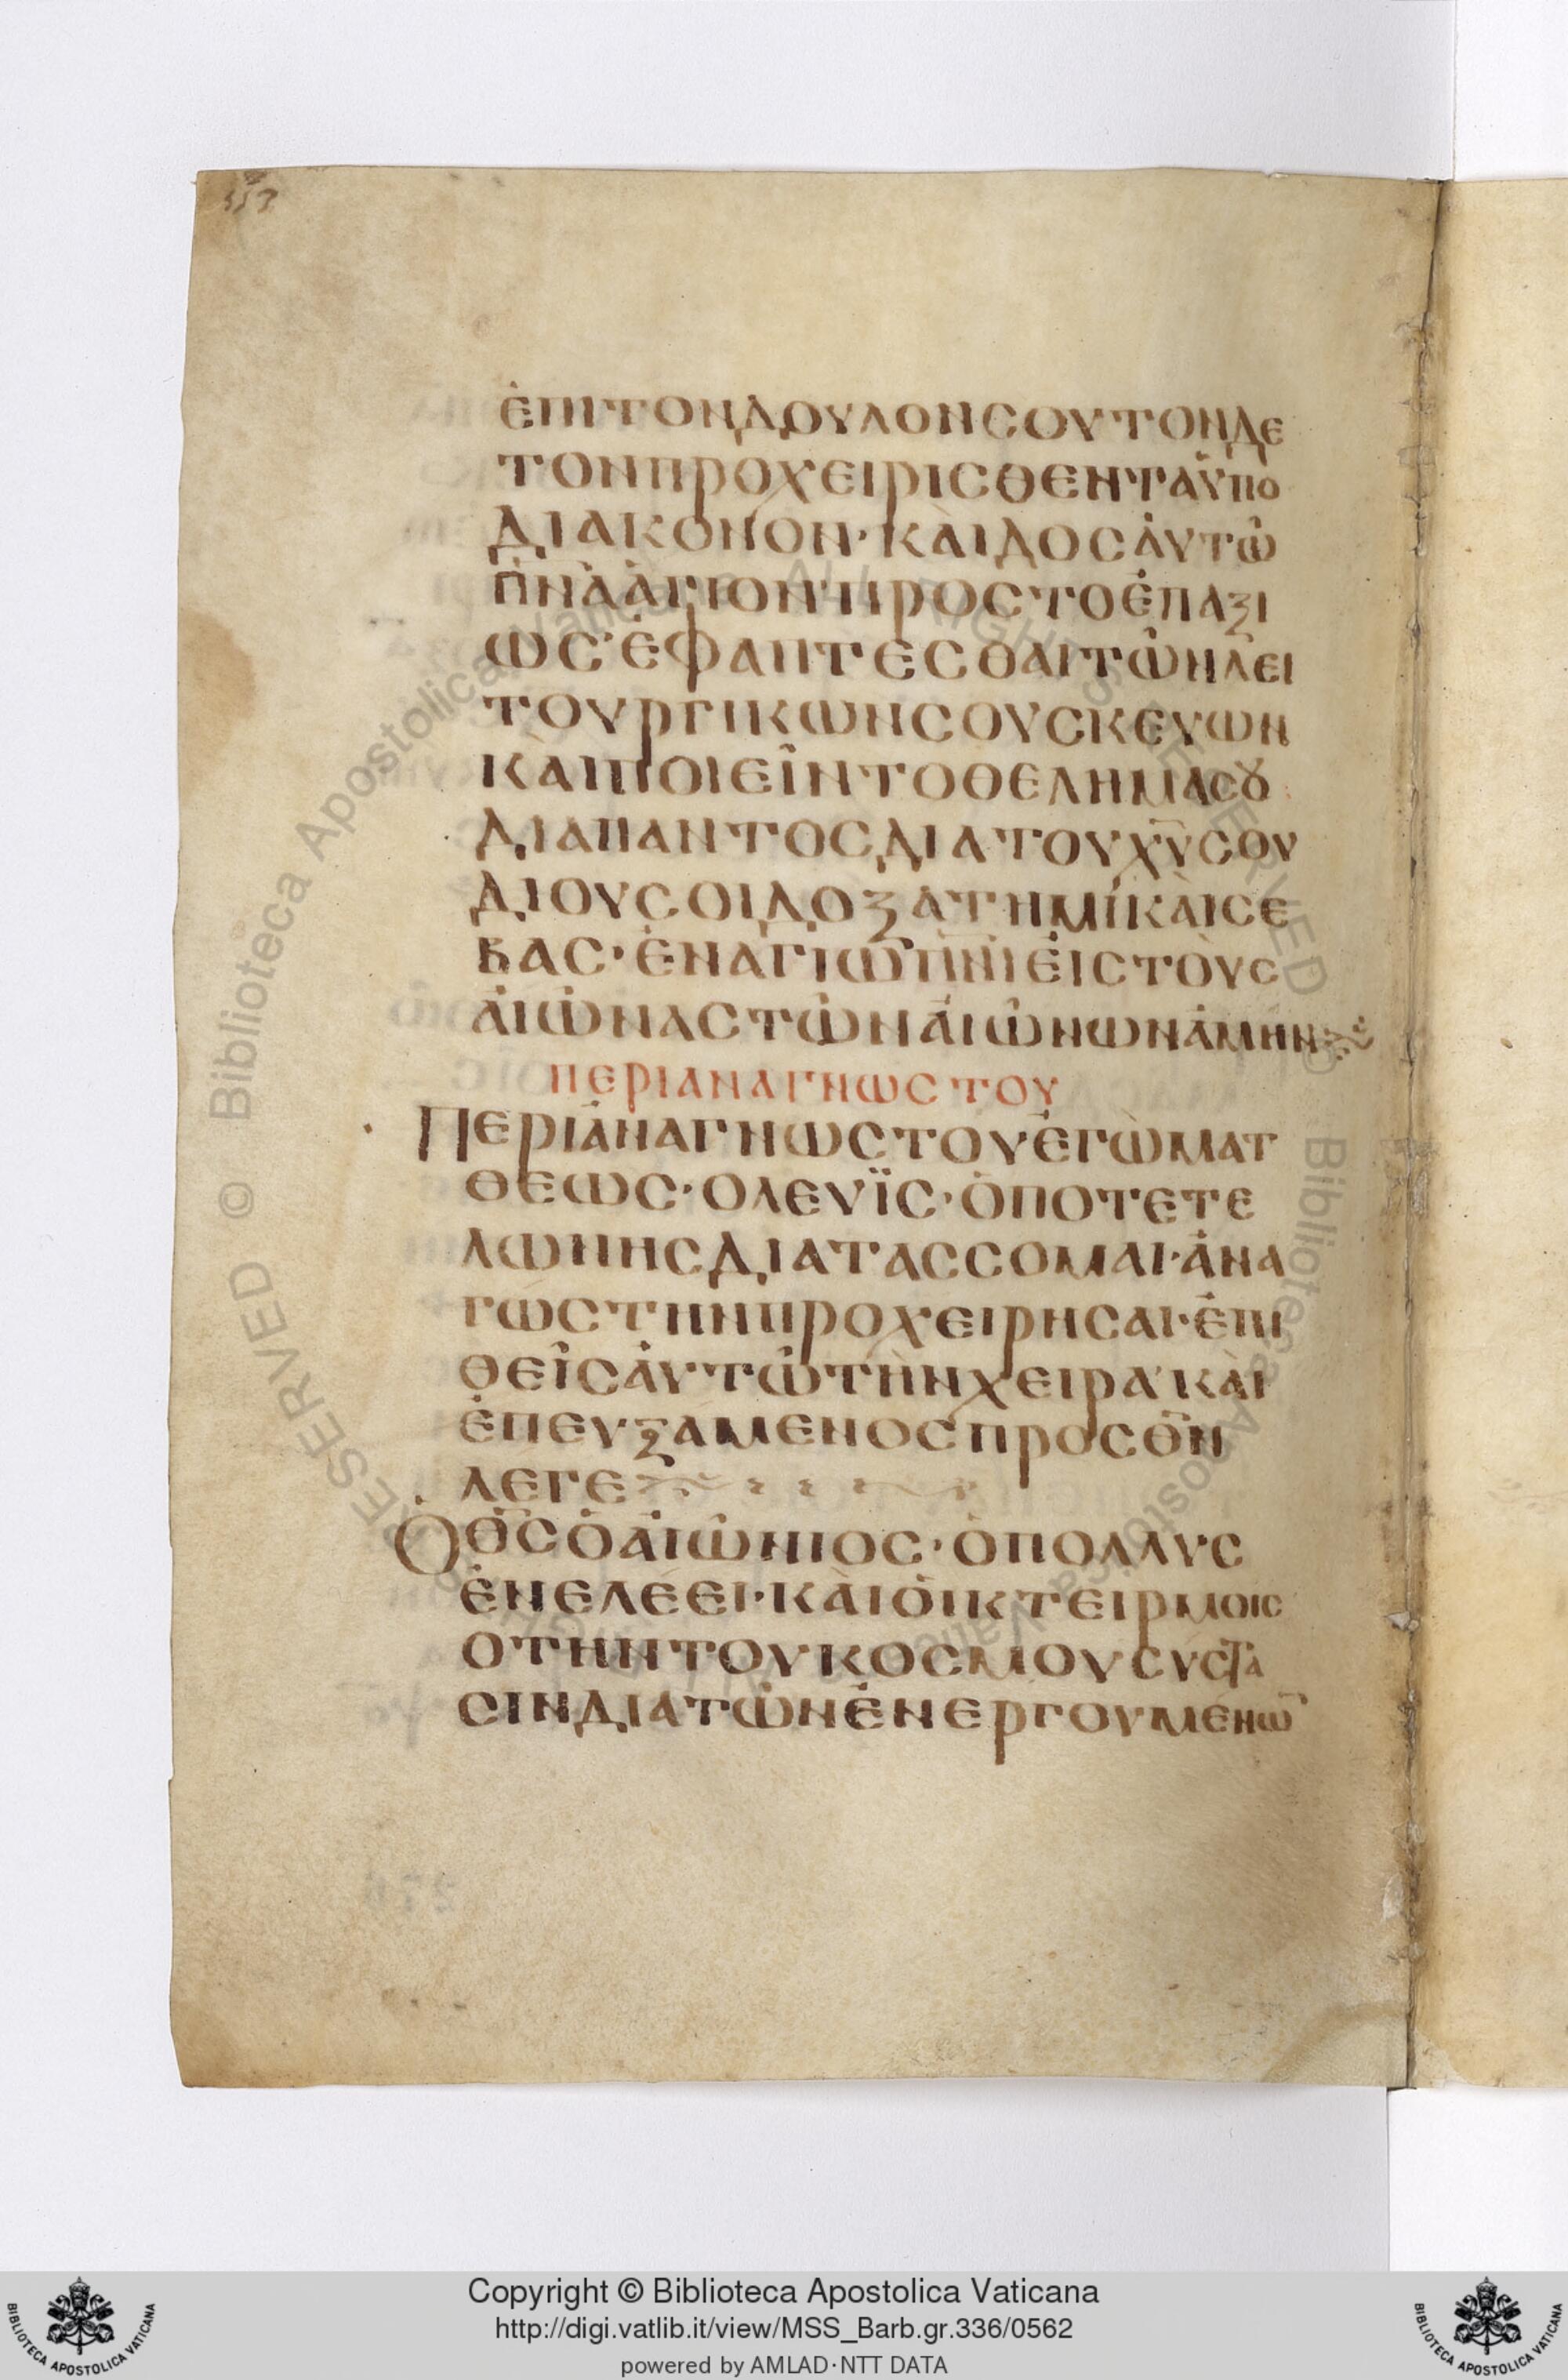 353
ἐπιτονδουλονσουτονδε
τονπροχειρισθενταϋπο
διακονον·κὰιδοσἀυτῶ
π̅ν̅ὰἁγιον·προστοἐπαξι
ωσ·ἐφαπτεσθαιτῶνλει
τουργικωνσουσκευων
κὰιποιεῖντοθελημασȣ
διαπαντοσδιατουχ̅υ̅σου
διουσοιδοξατημὶκὰισε
βασ·ἐναγιωπ̅ν̅ϊἐιστὸυσ
ἀιῶναστῶνἀιώνωνἀμὴν
περιαναγνωστου
Περιἀναγνωστουἐγὼματ
θεωσ·ολευϊσ·ὁποτετε
λωνησδιατασσομαι·ἀνα
γώστηνπροχειρησαι·ἐπι
θεῖσἀυτῶτὴνχειρα·κὰι
ἐπευξάμενοσπροσθ̅ν̅
λεγε
Ὁθ̅σ̅ὁἀιώνιοσ·ὁπολλυσ
ἐνελέει·κὰιὀικτειρμοισ
οτηντουκοσμουσυστα
σινδιατῶνἐνεργουμένω̅
Copyright © Biblioteca Apostolica Vaticana
http://digi.vatlib.it/view/MSS_Barb.gr.336/0562
powered by AMLAD·NTT DATA
BIBLIOTECA APOSTOLICA VATICANA
BIBLIOTECA APOSTOLICA VATICANA